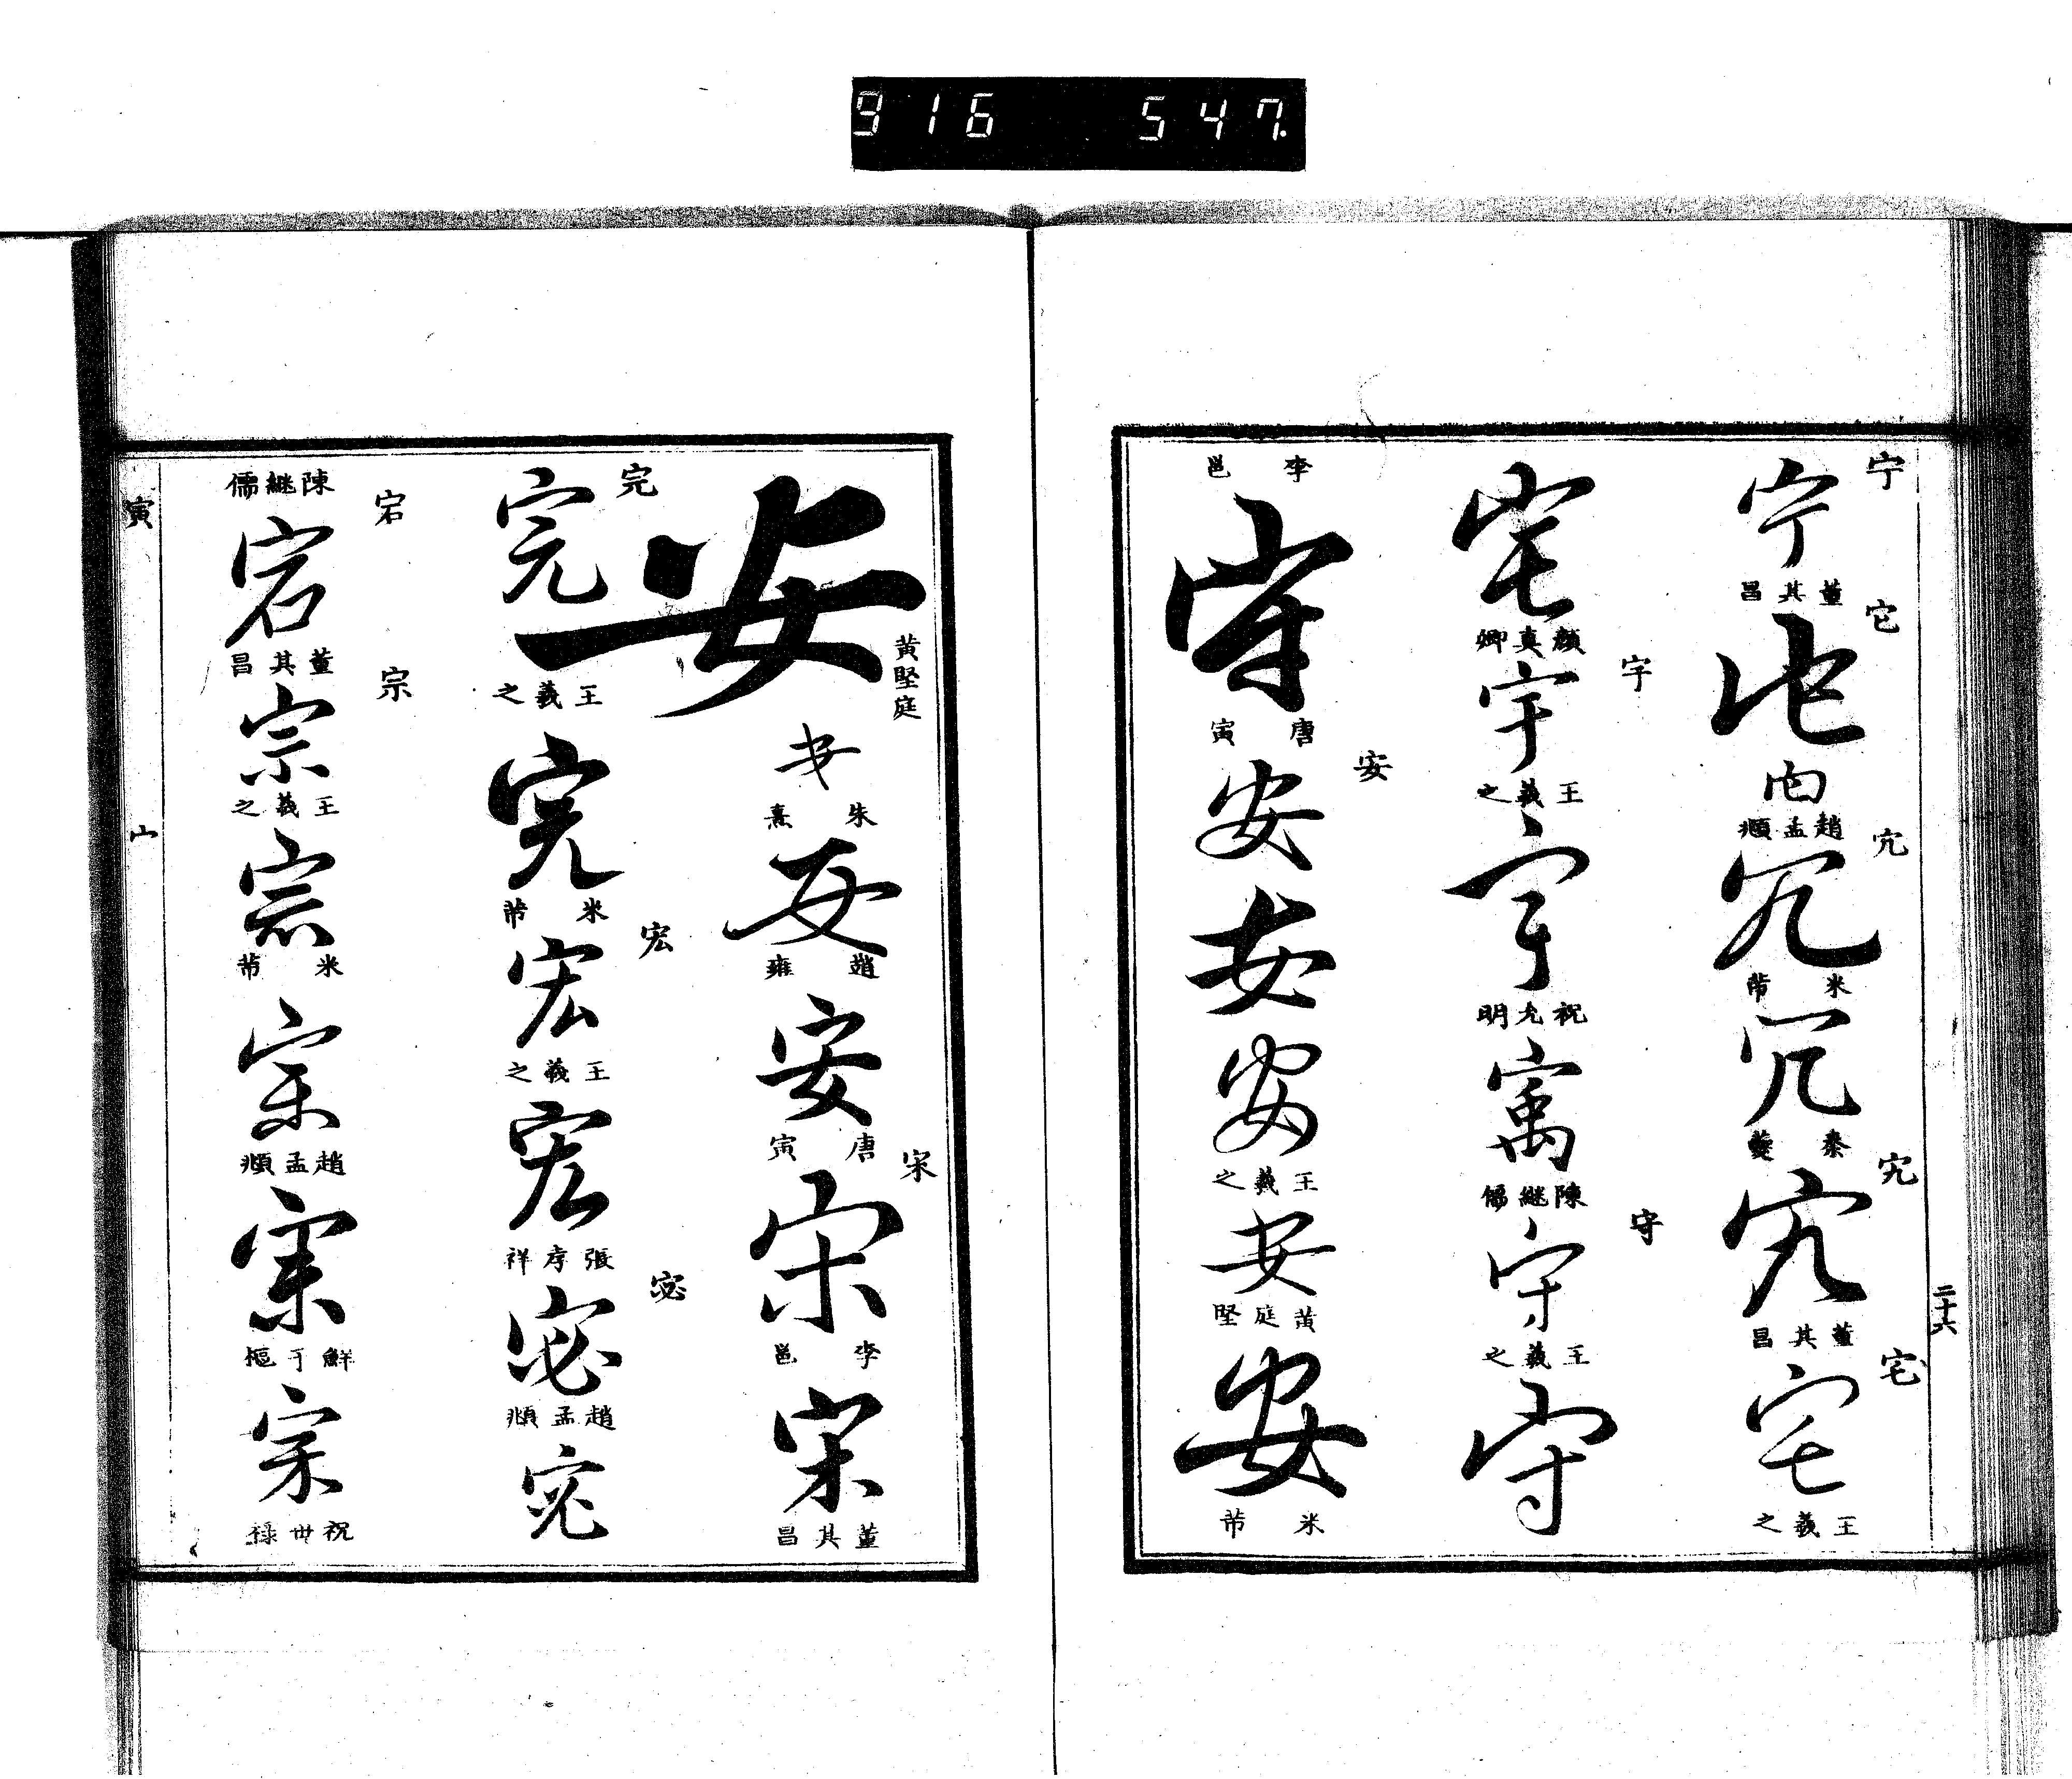 916 547.
宁
宁
董其昌
它
它
宂
趙孟頫
冗
米芾
冗
秦夔
宄
宄
董其昌
宅
宅
王羲之
二十六
宅
顏真卿
宇
宇
王羲之
宇
祝允明
寓
陳繼儒
守
守
王羲之
守
李邕
守
唐寅
安
安
安
安
王羲之
安
黃庭堅
安
米芾
安
黃堅庭
安
朱熹
安
趙雍
安
唐寅
宋
宋
李邕
宋
董其昌
完
完
王羲之
完
米芾
宏
宏
王羲之
宏
張序祥
宓
宓
趙孟頫
宓
陳繼儒
宕
宕
董其昌
宗
宗
王羲之
宗
米芾
宗
趙孟頫
宗
鮮于樞
宗
祝世祿
寅
山